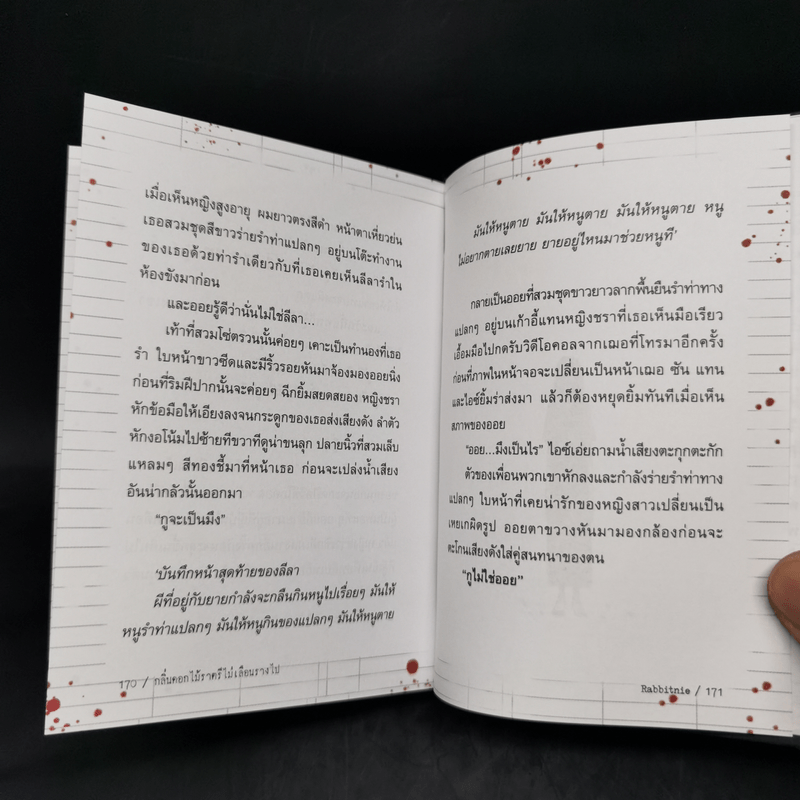 เมื่อเห็นหญิงสูงอายุ ผมยาวตรงสีดำ หน้าตาเหี่ยวย่น
เธอสวมชุดสีขาวร่ายรำท่าแปลกๆ อยู่บนโต๊ะทำงาน
ของเธอด้วยท่ารำเดียวกับที่เธอเคยเห็นลีลารำใน
ห้องขังมาก่อน
และออยรู้ดีว่านั่นไม่ใช่ลีลา...
เท้าที่สวมโซ่ตรวนนั้นค่อยๆ เคาะเป็นทำนองที่เธอ
รำ ใบหน้าขาวซีดและมีริ้วรอยหันมาจ้องมองออยนิ่ง
ก่อนที่ริมฝีปากนั้นจะค่อยๆ ฉีกยิ้มสยดสยอง หญิงชรา
หักข้อมือให้เอียงลงจนกระดูกของเธอส่งเสียงดัง ลำตัว
หักงอโน้มไปซ้ายทีขวาทีดูน่าขนลุก ปลายนิ้วที่สวมเล็บ
แหลมๆ สีทองชี้มาที่หน้าเธอ ก่อนจะเปล่งน้ำเสียง
อันน่ากลัวนั้นออกมา
“กูจะเป็นมึง”
‘บันทึกหน้าสุดท้ายของลีลา
ผีที่อยู่กับยายกำลังจะกลืนกินหนูไปเรื่อยๆ มันให้
หนูรำท่าแปลกๆ มันให้หนูกินของแปลกๆ มันให้หนูตาย
170 / กลิ่นดอกไม้ราตรีไม่เลือนรางไป
มันให้หนูตาย มันให้หนูตาย มันให้หนูตาย หนู
ไม่อยากตายเลยยาย ยายอยู่ไหนมาช่วยหนูที’
กลายเป็นออยที่สวมชุดขาวยาวลากพื้นยืนรำท่าทาง
แปลกๆ อยู่บนเก้าอี้แทนหญิงชราที่เธอเห็นมือเรียว
เอื้อมมือไปกดรับวิดีโอคอลจากเฌอที่โทรมาอีกครั้ง
ก่อนที่ภาพในหน้าจอจะเปลี่ยนเป็นหน้าเฌอ ซัน แทน
และไอซ์ยิ้มร่าส่งมา แล้วก็ต้องหยุดยิ้มทันทีเมื่อเห็น
สภาพของออย
“ออย...มึงเป็นไร” ไอซ์เอ่ยถามน้ำเสียงตะกุกตะกัก
ตัวของเพื่อนพวกเขาหักลงและกำลังร่ายรำท่าทาง
แปลกๆ ใบหน้าที่เคยน่ารักของหญิงสาวเปลี่ยนเป็น
เหยเกผิดรูป ออยตาขวางหันมามองกล้องก่อนจะ
ตะโกนเสียงดังใส่คู่สนทนาของตน
“กูไม่ใช่ออย”
Rabbitnie / 171